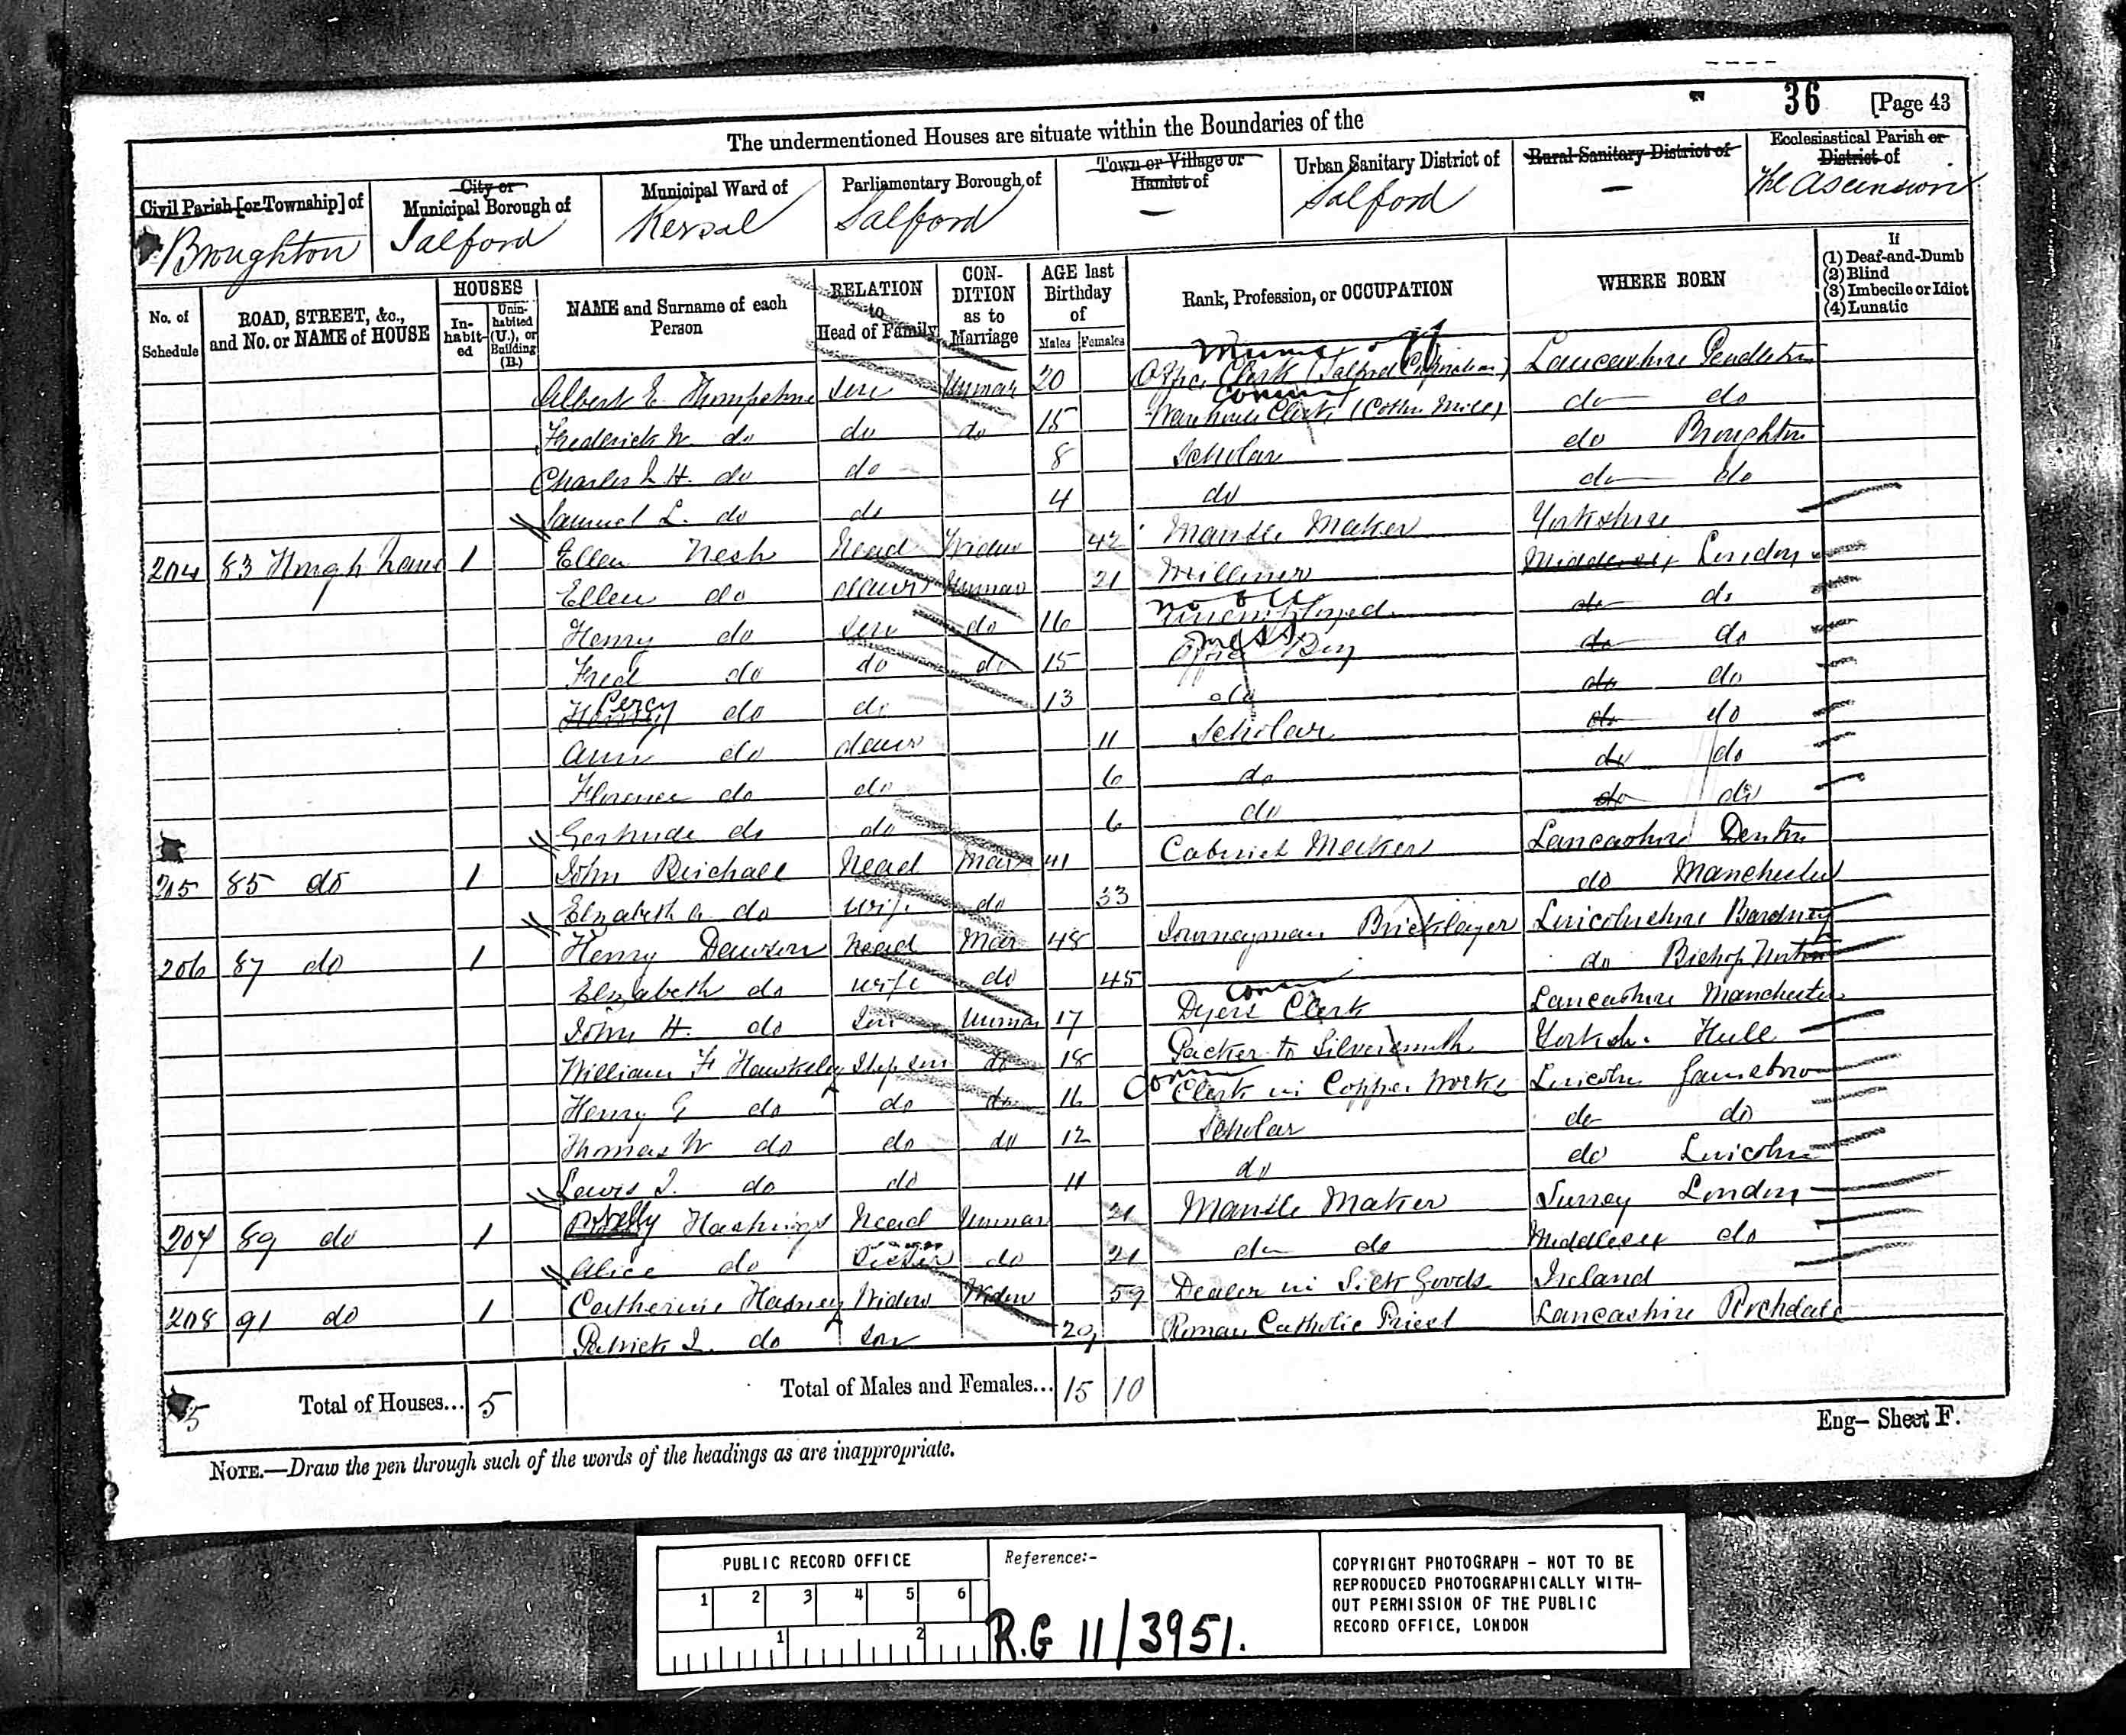 36 [Page 43
The undermentioned Houses are situate within the Boundaries of the
Civil Parish [or Township] of
City or Municipal Borough of
Municipal Ward of
Parliamentary Borough of
Town or Village or Hamlet of
Urban Sanitary District of
Rural Sanitary District of
Ecclesiastical Parish or District of
Broughton Salford Kersal Salford — Salford — The Ascension
No. of Schedule
ROAD, STREET, &c., and No. or NAME of HOUSE
HOUSES
Inhabited
Uninhabited (U.), or Building (B.)
NAME and Surname of each Person
RELATION to Head of Family
CONDITION as to Marriage
AGE last Birthday of
Males Females
Rank, Profession, or OCCUPATION
WHERE BORN
If
(1) Deaf-and-Dumb
(2) Blind
(3) Imbecile or Idiot
(4) Lunatic
Albert E. son Unmar 20 Office Clerk (Salford Corporation) Lancashire Pendleton
Frederick W. do do do 15 Warehouse Clerk (Cotton Mill) do do
Charles do do 8 Scholar do Broughton
Samuel L. do do 4 do do do
204 83 Hough Lane 1 Ellen Nesh Head Widow 42 Mantle Maker Yorkshire
Ellen do daur Unmar 21 Milliner Middlesex London
Henry do son do 16 unemployed do do
Fred do do do 15 Office Boy do do
Percy do do 13 do do do
Ann do daur 11 Scholar do do
Florence do do 6 do do do
Gertrude do do 6 do do do
205 85 do 1 John Birchall Head Mar 41 Cabinet Maker Lancashire Denton
Elizabeth A. do wife do 33 do Manchester
206 87 do 1 Henry Dawson Head Mar 48 Journeyman Bricklayer Lincolnshire Bardney
Elizabeth do wife do 45 do Bishop Norton
John H. do Son Unmar 17 Dyers Clerk Lancashire Manchester
William F Hawksley Stepson do 18 Packer to Silversmith Yorksh. Hull
Henry G do do do 16 Clerk in Copper Works Lincoln Gainsboro
Thomas W do do do 12 Scholar do do
Lewis J. do do 11 do do Lincoln
207 89 do 1 Hastings Head Unmar 21 Mantle Maker Surrey London
Alice do Sister do 21 do do Middlesex do
208 91 do 1 Catherine Widow Widow 59 Dealer in Silk Goods Ireland
Patrick J. do Son 29 Roman Catholic Priest Lancashire Rochdale
5 Total of Houses... 5 Total of Males and Females... 15 10
Eng— Sheet F.
NOTE.—Draw the pen through such of the words of the headings as are inappropriate.
PUBLIC RECORD OFFICE
1 2 3 4 5 6
1 2
Reference:-
R.G 11/3951.
COPYRIGHT PHOTOGRAPH - NOT TO BE
REPRODUCED PHOTOGRAPHICALLY WITH-
OUT PERMISSION OF THE PUBLIC
RECORD OFFICE, LONDON